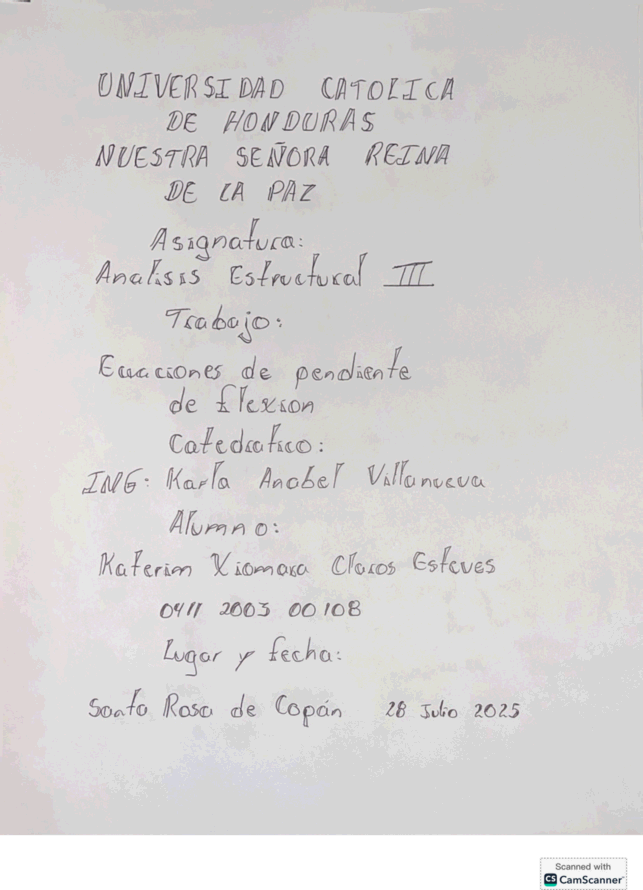 UNIVERSIDAD CATOLICA
DE HONDURAS
NUESTRA SEÑORA REINA
DE LA PAZ
Asignatura:
Analisis Estructural III
Trabajo:
Ecuaciones de pendiente
de flexion
Catedratico:
ING: Karla Anabel Villanueva
Alumno:
Katerin Xiomara Claros Esteves
0411 2003 00108
Lugar y fecha:
Santa Rosa de Copán 28 Julio 2025
Scanned with
CS CamScanner